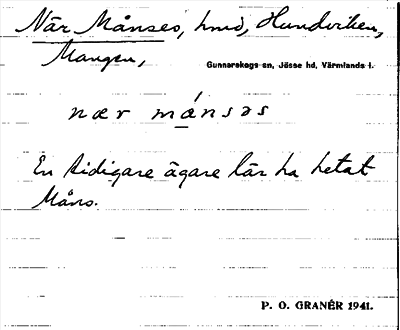 När Månses, hmd, Hundviken,
Mangen,
Gunnarskogs sn, Jösse hd, Värmlands l.
nær månsəs
En tidigare ägare lär ha hetat
Måns.
P. O. GRANÉR 1941.